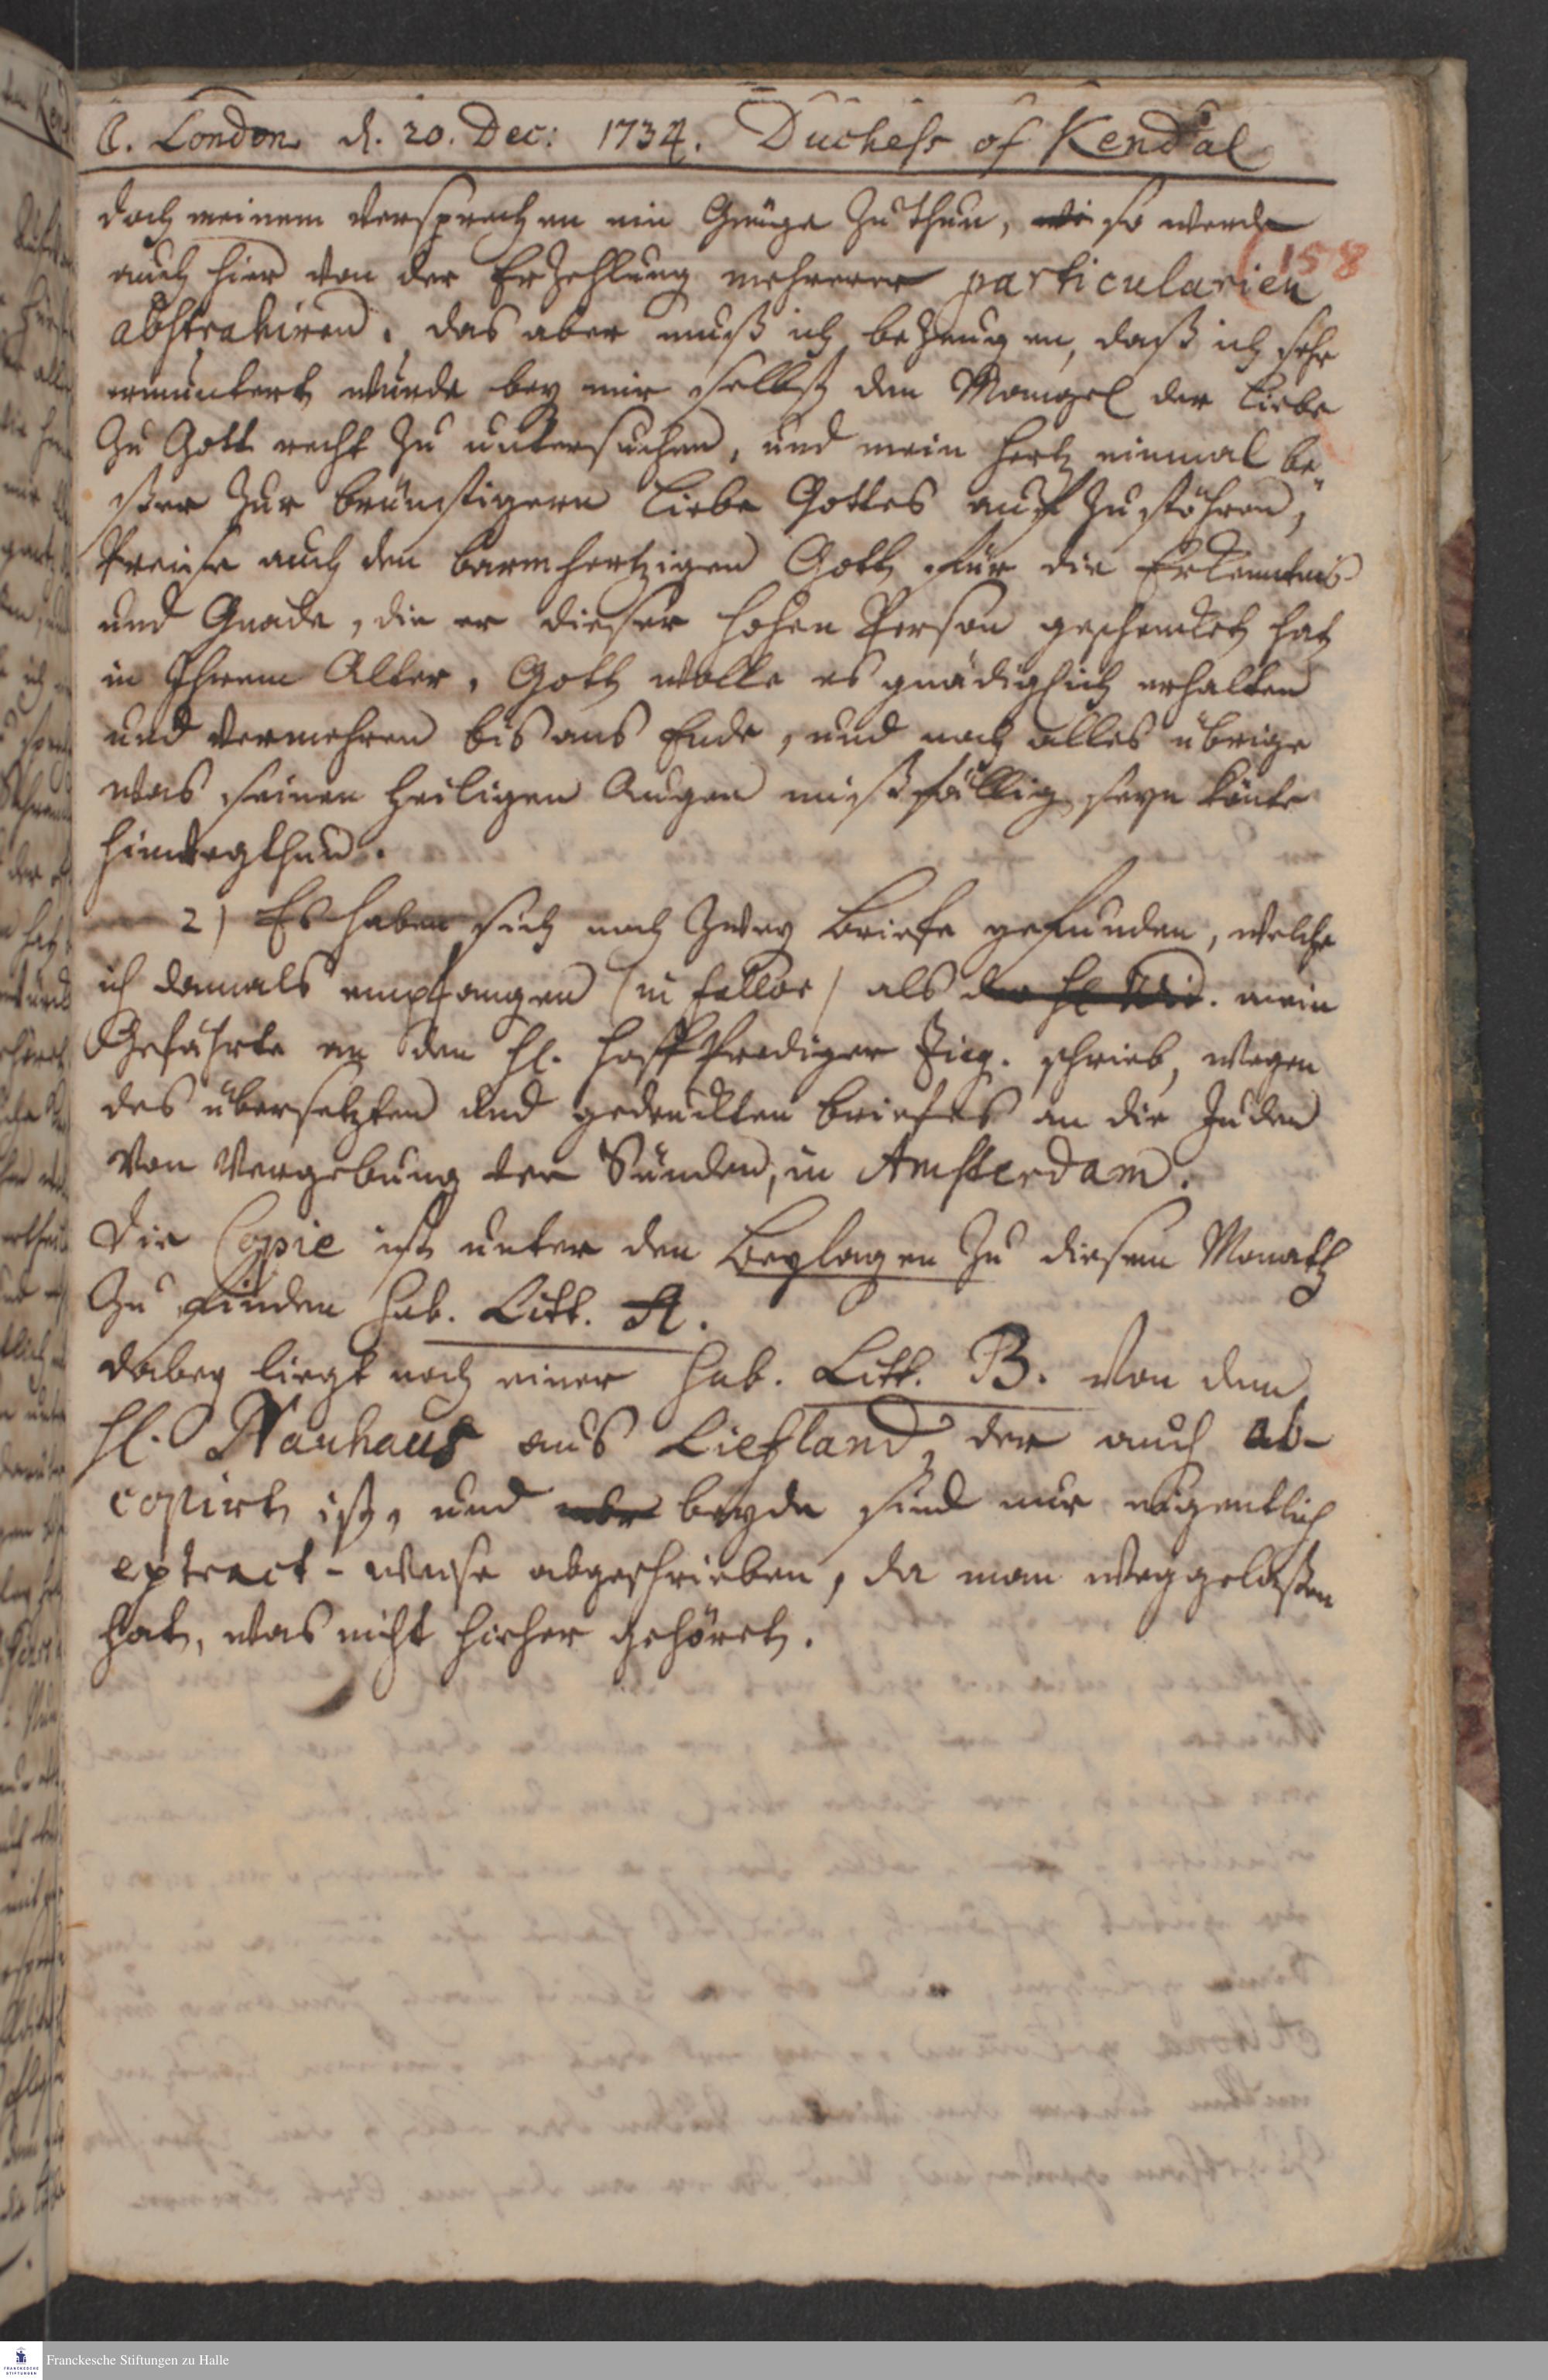 C. London d. 20. Dec: 1734. Duchess of Kendal
158
doch meinem Versprechen ein Gnüge zu thun, so werde
auch hier von der Erzehlung mehrerer particularien
abstrahiren. das aber muß ich bezeugen, daß ich sehr
ermuntert wurde bey mir selbst den Mangel der Liebe
zu Gott recht zu untersuchen, und mein Hertz einmal be„
ßer zur brünstigern Liebe Gottes auf zu stöhren,
Preise auch den barmhertzigen Gott für die Erkenntnis
und Gnade, die er dieser hohen Person geschencket hat
in Ihrem Alter. Gott wolle es gnädiglich erhalten
und vermehren bis ans Ende, und noch alles übrige
was seinen heiligen Augen mißfällig seyn könte
hinwegthun.
2) Es haben sich noch zwey Briefe gefunden, welche
ich damals empfangen (in Halle) als mein
Gefährte an den H. Hoff Prediger Zieg. schrieb, wegen
des übersetzten und gedruckten briefes an die Juden
von Vergebung der Sünden, in Amsterdam.
Die Copie ist unter den Beylagen zu diesem Monath
zu finden sub. Litt. A.
dabey liegt noch einer sub. Litt. B. von dem
H. Nauhaus aus Liefland, der auch ab-
copirt ist, und beyde sind nur eigentlich
extract-weise abgeschrieben, da man weggelaßen
hat, was nicht hieher gehöret.
Franckesche Stiftungen zu Halle